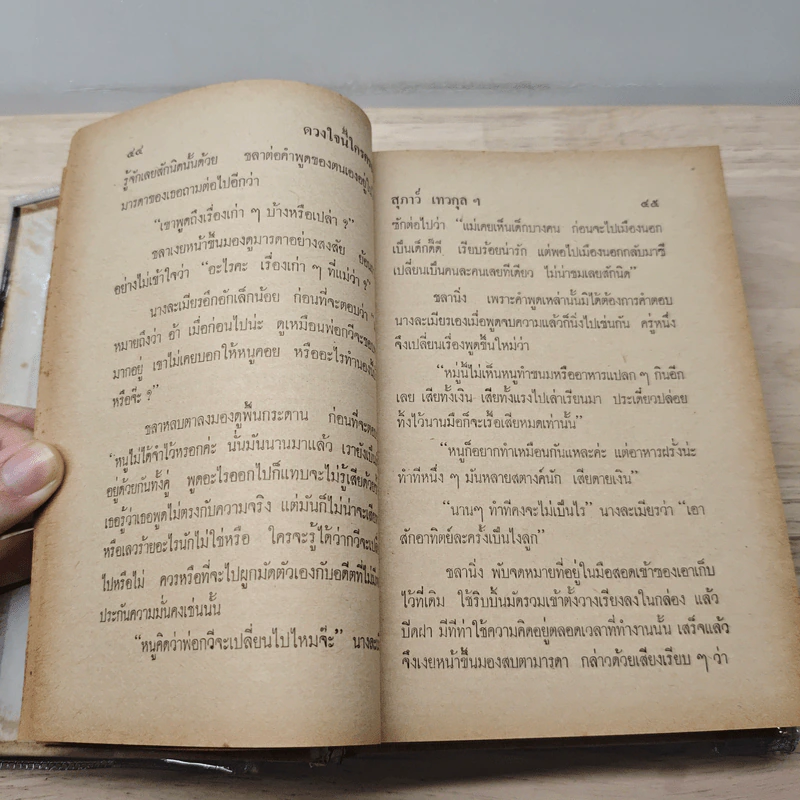 ๔๔
ดวงใจนี้ใคร
รู้จักเลยสักนิดนั้นด้วย ชลาต่อคำพูดของตนเองอยู่ใน
มารดาของเธอถามต่อไปอีกว่า
“เขาพูดถึงเรื่องเก่า ๆ บ้างหรือเปล่า ?”
ชลาเงยหน้าขึ้นมองดูมารดาอย่างสงสัย
อย่างไม่เข้าใจว่า “อะไรคะ เรื่องเก่า ๆ ที่แม่ว่า ?”
นางละเมียรอึกอักเล็กน้อย ก่อนที่จะตอบว่า
หมายถึงว่า อ้า เมื่อก่อนไปน่ะ ดูเหมือนพ่อกวีจะชอบ
มากอยู่ เขาไม่เคยบอกให้หนูคอย หรืออะไรทำนองนั้น
หรือจ๊ะ ?”
ชลาหลบตาลงมองดูพื้นกระดาน ก่อนที่จะตอบ
“หนูไม่ได้จำไว้หรอกค่ะ นั่นมันนานมาแล้ว เรายังเป็น
อยู่ด้วยกันทั้งคู่ พูดอะไรออกไปก็แทบจะไม่รู้เสียด้วย
เธอรู้ว่าเธอพูดไม่ตรงกับความจริง แต่มันก็ไม่น่าจะเสีย
หรือเลวร้ายอะไรนักไม่ใช่หรือ ใครจะรู้ได้ว่ากวีจะ
ไปหรือไม่ ควรหรือที่จะไปผูกมัดตัวเองกับอดีตที่ไม่
ประกันความมั่นคงเช่นนั้น
“หนูคิดว่าพ่อกวีจะเปลี่ยนไปไหมจ๊ะ” นางละเมี
สุภาว์ เทวกุล ฯ
๔๕
ซักต่อไปว่า “แม่เคยเห็นเด็กบางคน ก่อนจะไปเมืองนอก
เป็นเด็กดี๊ดี เรียบร้อยน่ารัก แต่พอไปเมืองนอกกลับมาซี
เปลี่ยนเป็นคนละคนเลยทีเดียว ไม่น่าชมเลยสักนิด”
ชลานิ่ง เพราะคำพูดเหล่านั้นมิได้ต้องการคำตอบ
นางละเมียรเองเมื่อพูดจบความแล้วก็นิ่งไปเช่นกัน ครู่หนึ่ง
จึงเปลี่ยนเรื่องพูดขึ้นใหม่ว่า
“หมู่นี้ไม่เห็นหนูทำขนมหรืออาหารแปลก ๆ กินอีก
เลย เสียทั้งเงิน เสียทั้งแรงไปเล่าเรียนมา ประเดี๋ยวปล่อย
ทิ้งไว้นานมือก็จะเรื้อเสียหมดเท่านั้น”
“หนูก็อยากทำเหมือนกันแหละค่ะ แต่อาหารฝรั่งน่ะ
ทำทีหนึ่ง ๆ มันหลายสตางค์นัก เสียดายเงิน”
“นานๆ ทำทีคงจะไม่เป็นไร” นางละเมียรว่า “เอา
สักอาทิตย์ละครั้งเป็นไงลูก”
ชลานิ่ง พับจดหมายที่อยู่ในมือสอดเข้าซองเอาเก็บ
ไว้ที่เดิม ใช้ริบบิ้นมัดรวมเข้าตั้งวางเรียงลงในกล่อง แล้ว
ปิดฝา มีทีท่าใช้ความคิดอยู่ตลอดเวลาที่ทำงานนั้น เสร็จแล้ว
จึงเงยหน้าขึ้นมองสบตามารดา กล่าวด้วยเสียงเรียบ ๆ ว่า